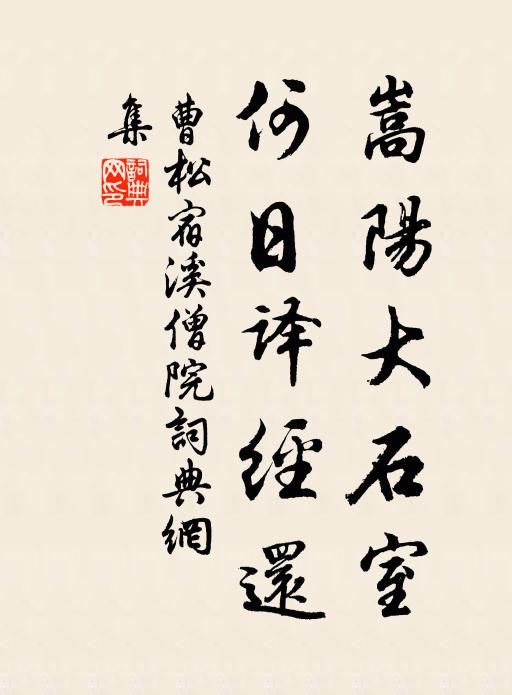 嵩陽大石室
何日译經還
曹松宿溪僧院詞典網
集
詞典網印